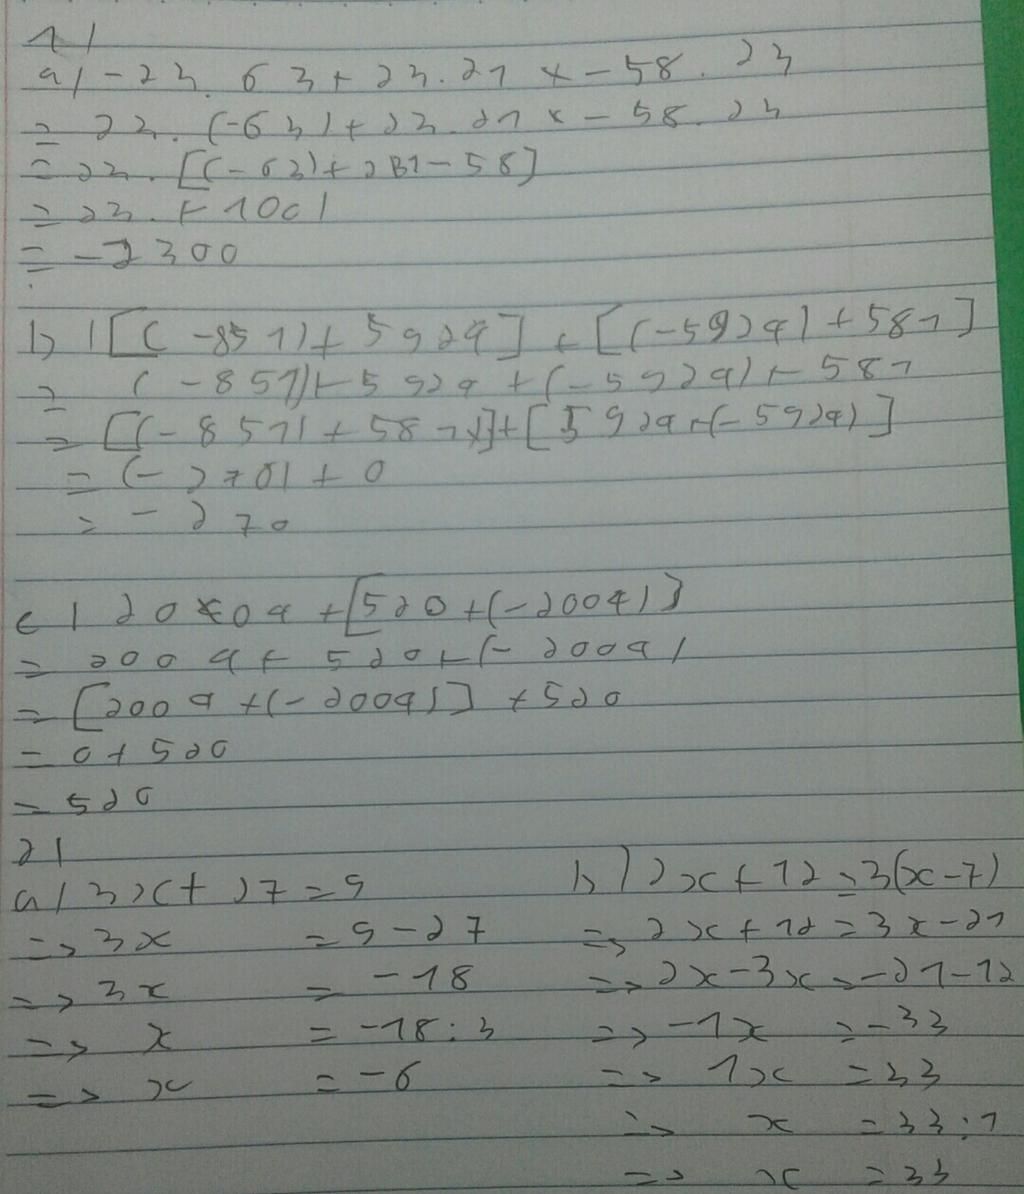 1)
a) -23. 63 + 23.21 x - 58. 23
= 23. (-63) + 23.21 x - 58. 23
= 23. [(-63) + 21 - 58]
= 23. (-100)
= -2300
b) [(-851) + 5924] + [(-5924) + 581]
= (-851) + 5924 + (-5924) + 581
= [(-851) + 581] + [5924 + (-5924)]
= (-270) + 0
= -270
c) 2004 + [520 + (-2004)]
= 2004 + 520 + (-2004)
= [2004 + (-2004)] + 520
= 0 + 520
= 520
2)
a) 3x + 27 = 9
=> 3x = 9 - 27
=> 3x = -18
=> x = -18 : 3
=> x = -6
b) 2x + 12 = 3(x - 7)
=> 2x + 12 = 3x - 21
=> 2x - 3x = -21 - 12
=> -1x = -33
=> 1x = 33
=> x = 33 : 1
=> x = 33